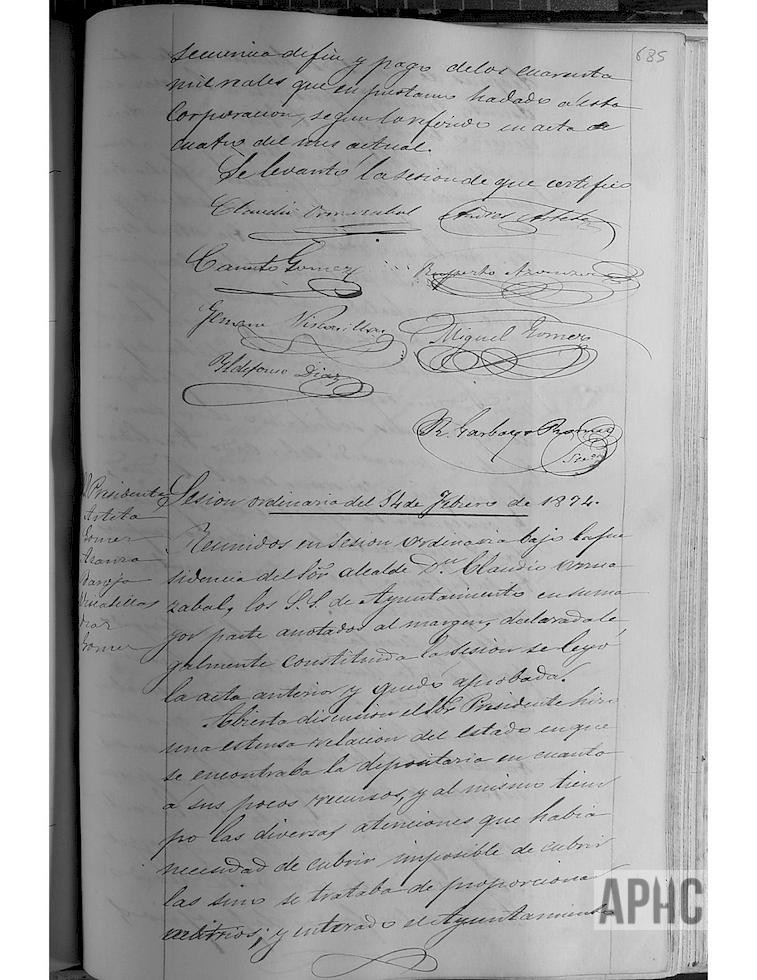 685
secuencia de fin y pago de los cuarenta
mil reales que en prestamo ha dado a esta
Corporacion, segun lo referido en acta de
cuatro del mes actual.
Se levantó la sesion de que certifico
Claudio Ormazabal
Canuto Gomez
Ruperto Aranza
Miguel Gomez
Yldefonso Diaz
R. Garbayo
Srio
Sesion ordinaria del 14 de Febrero de 1874.
Presidente
Arteta
Gomez
Aranza
Viscasillas
Diaz
Gomez
Reunidos en sesion ordinaria bajo la pre
sidencia del Sor alcalde Dn Claudio Orma
zabal, los S.S. de Ayuntamiento en su ma
yor parte anotados al margen, declarada le
galmente constituida la sesion se leyó
la acta anterior y quedó aprobada.
Abierta discusion el Sor Presidente hizo
una estensa relacion del estado en que
se encontraba la depositaria en cuanto
á sus pocos recursos, y al mismo tiem
po las diversas atenciones que habia
necesidad de cubrir imposible de cubrir
las sino se trataba de proporcionar
arbitrios; y enterado el Ayuntamiento
APHC